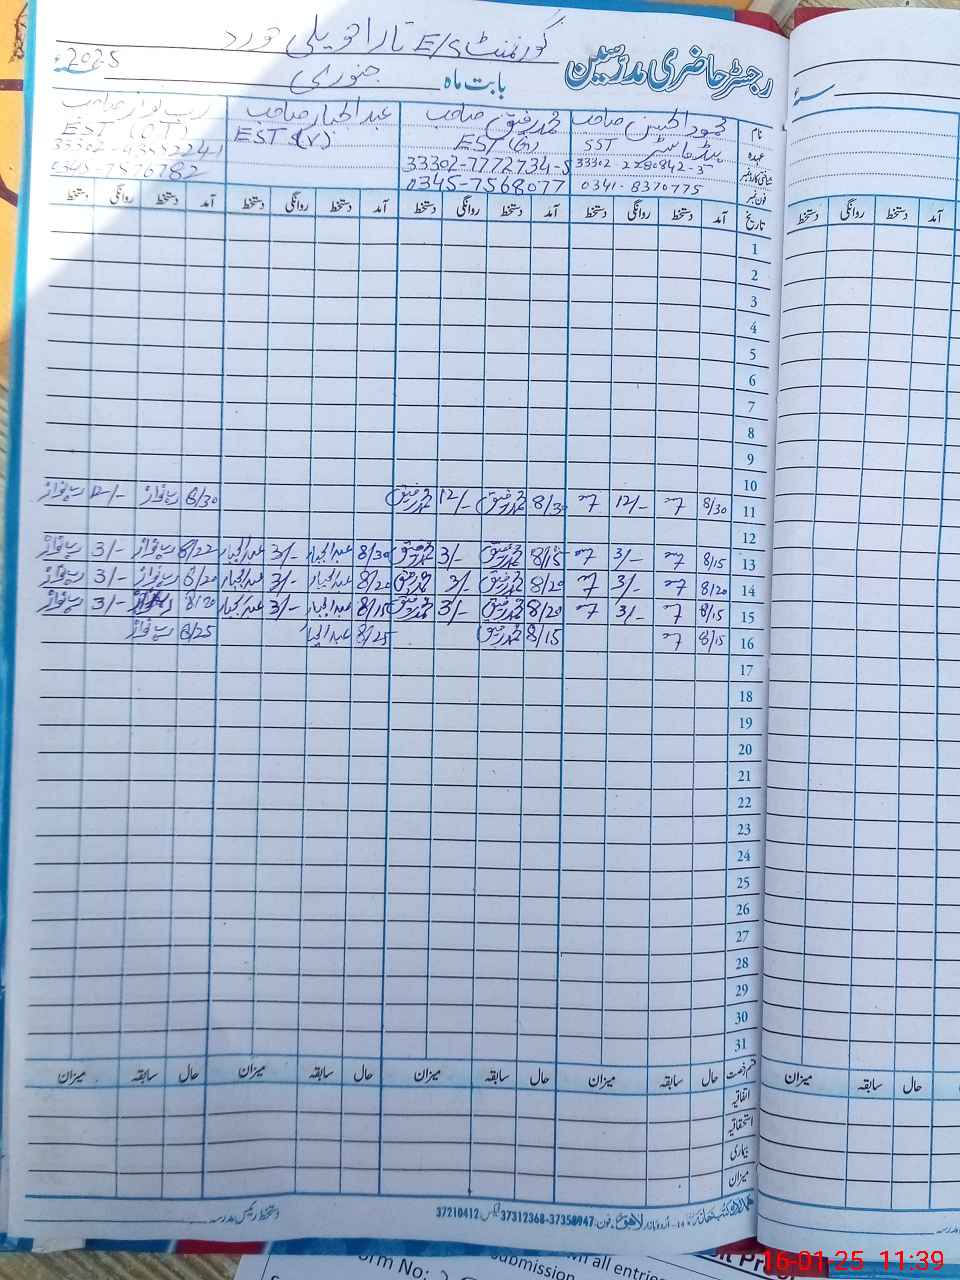 رجسٹر حاضری مدرسین گورنمنٹ E/S تارا حویلی خورد
بابت ماہ جنوری 2025ء
نام محمود الحسن صاحب محمد رفیق صاحب عبدالجبار صاحب رب نواز صاحب
عہدہ ہیڈ ماسٹر SST EST (G) EST (V) EST (OT)
شناختی کارڈ نمبر 33302-7772734-5
فون نمبر 0341-8370775 0345-7568077 0345-7576782
تاریخ آمد دستخط روانگی دستخط آمد دستخط روانگی دستخط آمد دستخط روانگی دستخط آمد دستخط روانگی دستخط
1
2
3
4
5
6
7
8
9
10
11 8/30 12/- 8/30 محمد رفیق 12/- محمد رفیق 8/30 رب نواز 12/- رب نواز
12
13 8/15 3/- 8/15 محمد رفیق 3/- محمد رفیق 8/30 عبدالجبار 3/- عبدالجبار 8/22 رب نواز 3/- رب نواز
14 8/20 3/- 8/20 محمد رفیق 3/- محمد رفیق 8/20 عبدالجبار 3/- عبدالجبار 8/20 رب نواز 3/- رب نواز
15 8/15 3/- 8/20 محمد رفیق 3/- محمد رفیق 8/15 عبدالجبار 3/- عبدالجبار 8/20 3/- رب نواز
16 8/15 8/15 محمد رفیق 8/25 عبدالجبار 8/25 رب نواز
17
18
19
20
21
22
23
24
25
26
27
28
29
30
31
قسم رخصت حال سابقہ میزان حال سابقہ میزان حال سابقہ میزان حال سابقہ میزان
اتفاقیہ
استحقاقیہ
بیماری
میزان
اردو بازار لاہور، فون: 37358947-37312368 فیکس: 37210412
دستخط رئیس مدرسہ
آمد دستخط روانگی دستخط
حال سابقہ میزان
orm No:
submission
all entrie
16-01-25 11:39